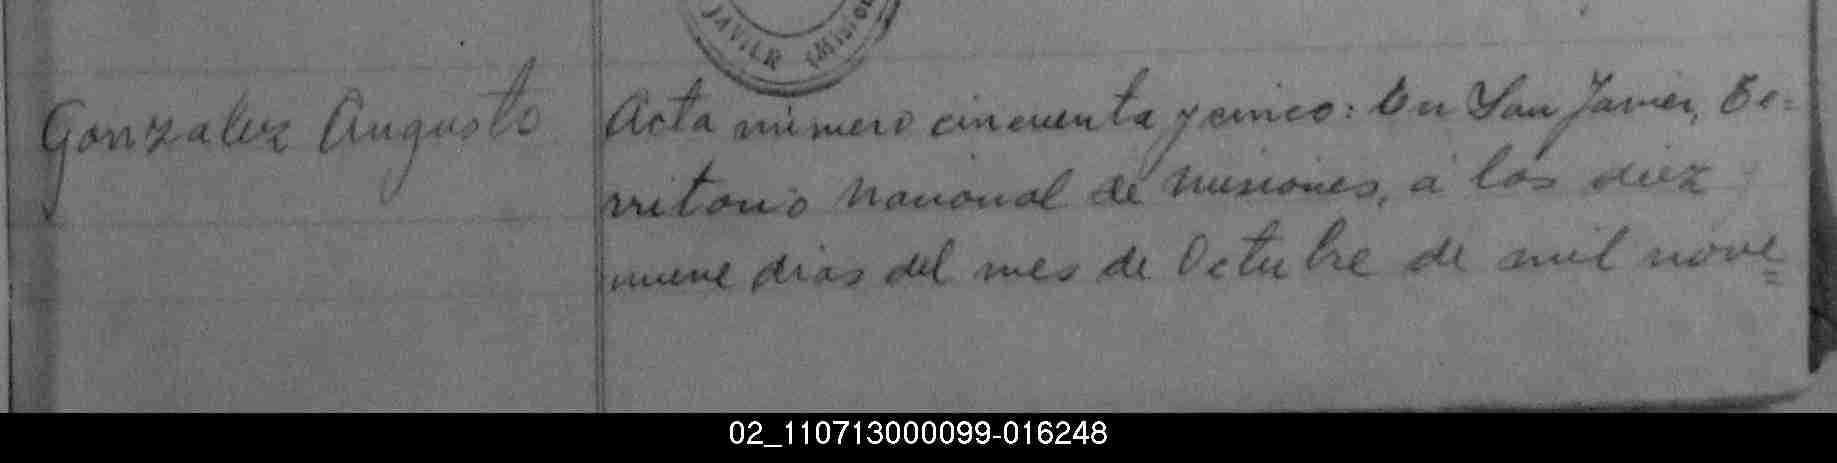 JAVIER (MISION
Gonzalez Augusto
Acta número cincuenta y cinco: En San Javier, Te=
rritorio Nacional de Misiones, á los diez
nueve dias del mes de Octubre de mil nove=
02_110713000099-016248